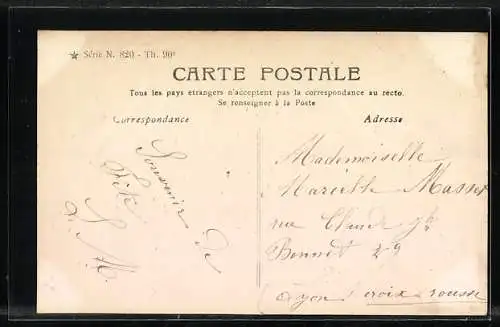 ★ Série N. 820 - Th. 90⁰
CARTE POSTALE
Tous les pays étrangers n'acceptent pas la correspondance au recto.
Se renseigner à la Poste
Correspondance
Adresse
Souvenir de
Fête
Mademoiselle
rue Claude
Bonnet 29
Croix-rousse